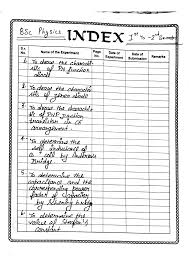 BSc Physics. INDEX 1st To 2nd Semester
S.r. No. Name of the Experiment Page No. Date of Experiment Date of Submission Remarks
1. To draw the characteri
stic of PN junction
diode
2. To draw the characteri
stic of zener diode
3. To draw the characteri
stic of PNP junction
transistor in CE
arrangement.
4. To determine the
self inductance of
a coil by Anderson's
Bridge.
5. To determine the
capacitance and the
corresponding power
factor of Capacitor
by Schering bridge
6. To determine the
value of Stefan's
constant